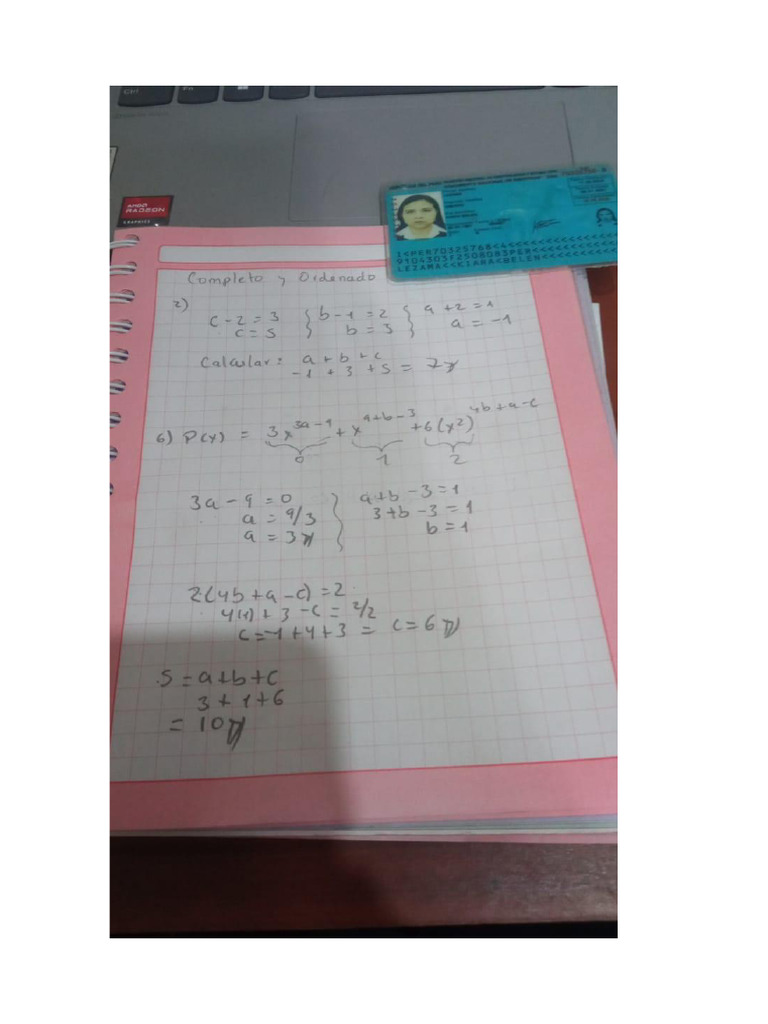 Ctrl
Fn
AMD
RADEON
GRAPHICS
I<PER70325768<4<<<<<<<<<<<<<<<
9104303F2508083PER<<<<<<<<<<<
LEZAMA<<KIARA<BELEN<<<<<<<<<<<
Completo y Ordenado
2)
c - 2 = 3 } b - 1 = 2 { a + 2 = 1
c = 5 } b = 3 { a = -1
Calcular: a + b + c
-1 + 3 + 5 = 7
6) P(x) = 3x^{3a-9} + x^{a+b-3} + 6(x²)^{4b+a-c}
0 1 2
3a - 9 = 0 } a+b-3=1
a = 9/3 } 3+b-3=1
a = 3 } b=1
2(4b+a-c)=2
4(1)+3-c=2/2
c=-1+4+3 = c=6
S = a+b+c
3+1+6
= 10